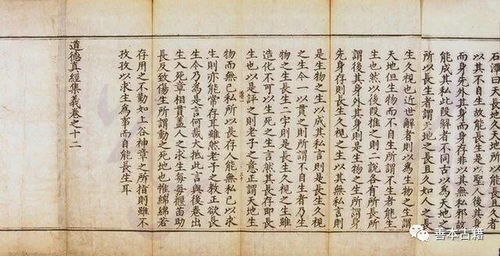 石潭曰天地所以能長且久者
以其不自生故能長生是以聖人後其身
而身先外其身而身存非以其無私邪故
能成其私此段解者不同古以為天地之
所以長生者謂天地之長且久如人之長
生久視也近世解者則以為生物之生謂
天地但生物而不自生所謂不生者能生
生也然以後段推之則二說各有所長所
謂後其身外其身則是生物之生所謂身
先身存則長生久視之生以其無私言則
是生物之生以成其私言則是長生久視
之生今一以貫之則所謂不自生者乃生
物之生長生二字則是長生久視之生雖
造化不可以生死之生言然其長存即長
生也以是評之則老子之意正謂天地生
物而無己私所以長存人能無私己以求
生則亦能常存雖然老子之教正欲長
生今乃為是言何哉大抵此言與後卷出
生入死章相貫蓋人之求生每每揠苗助
長反致傷生所謂動之死地也惟綿綿若
存用之不勤如上谷神章之所指則雖不
孜孜以求生為事而自能長生耳
道德真經集義卷之十二
善本古籍